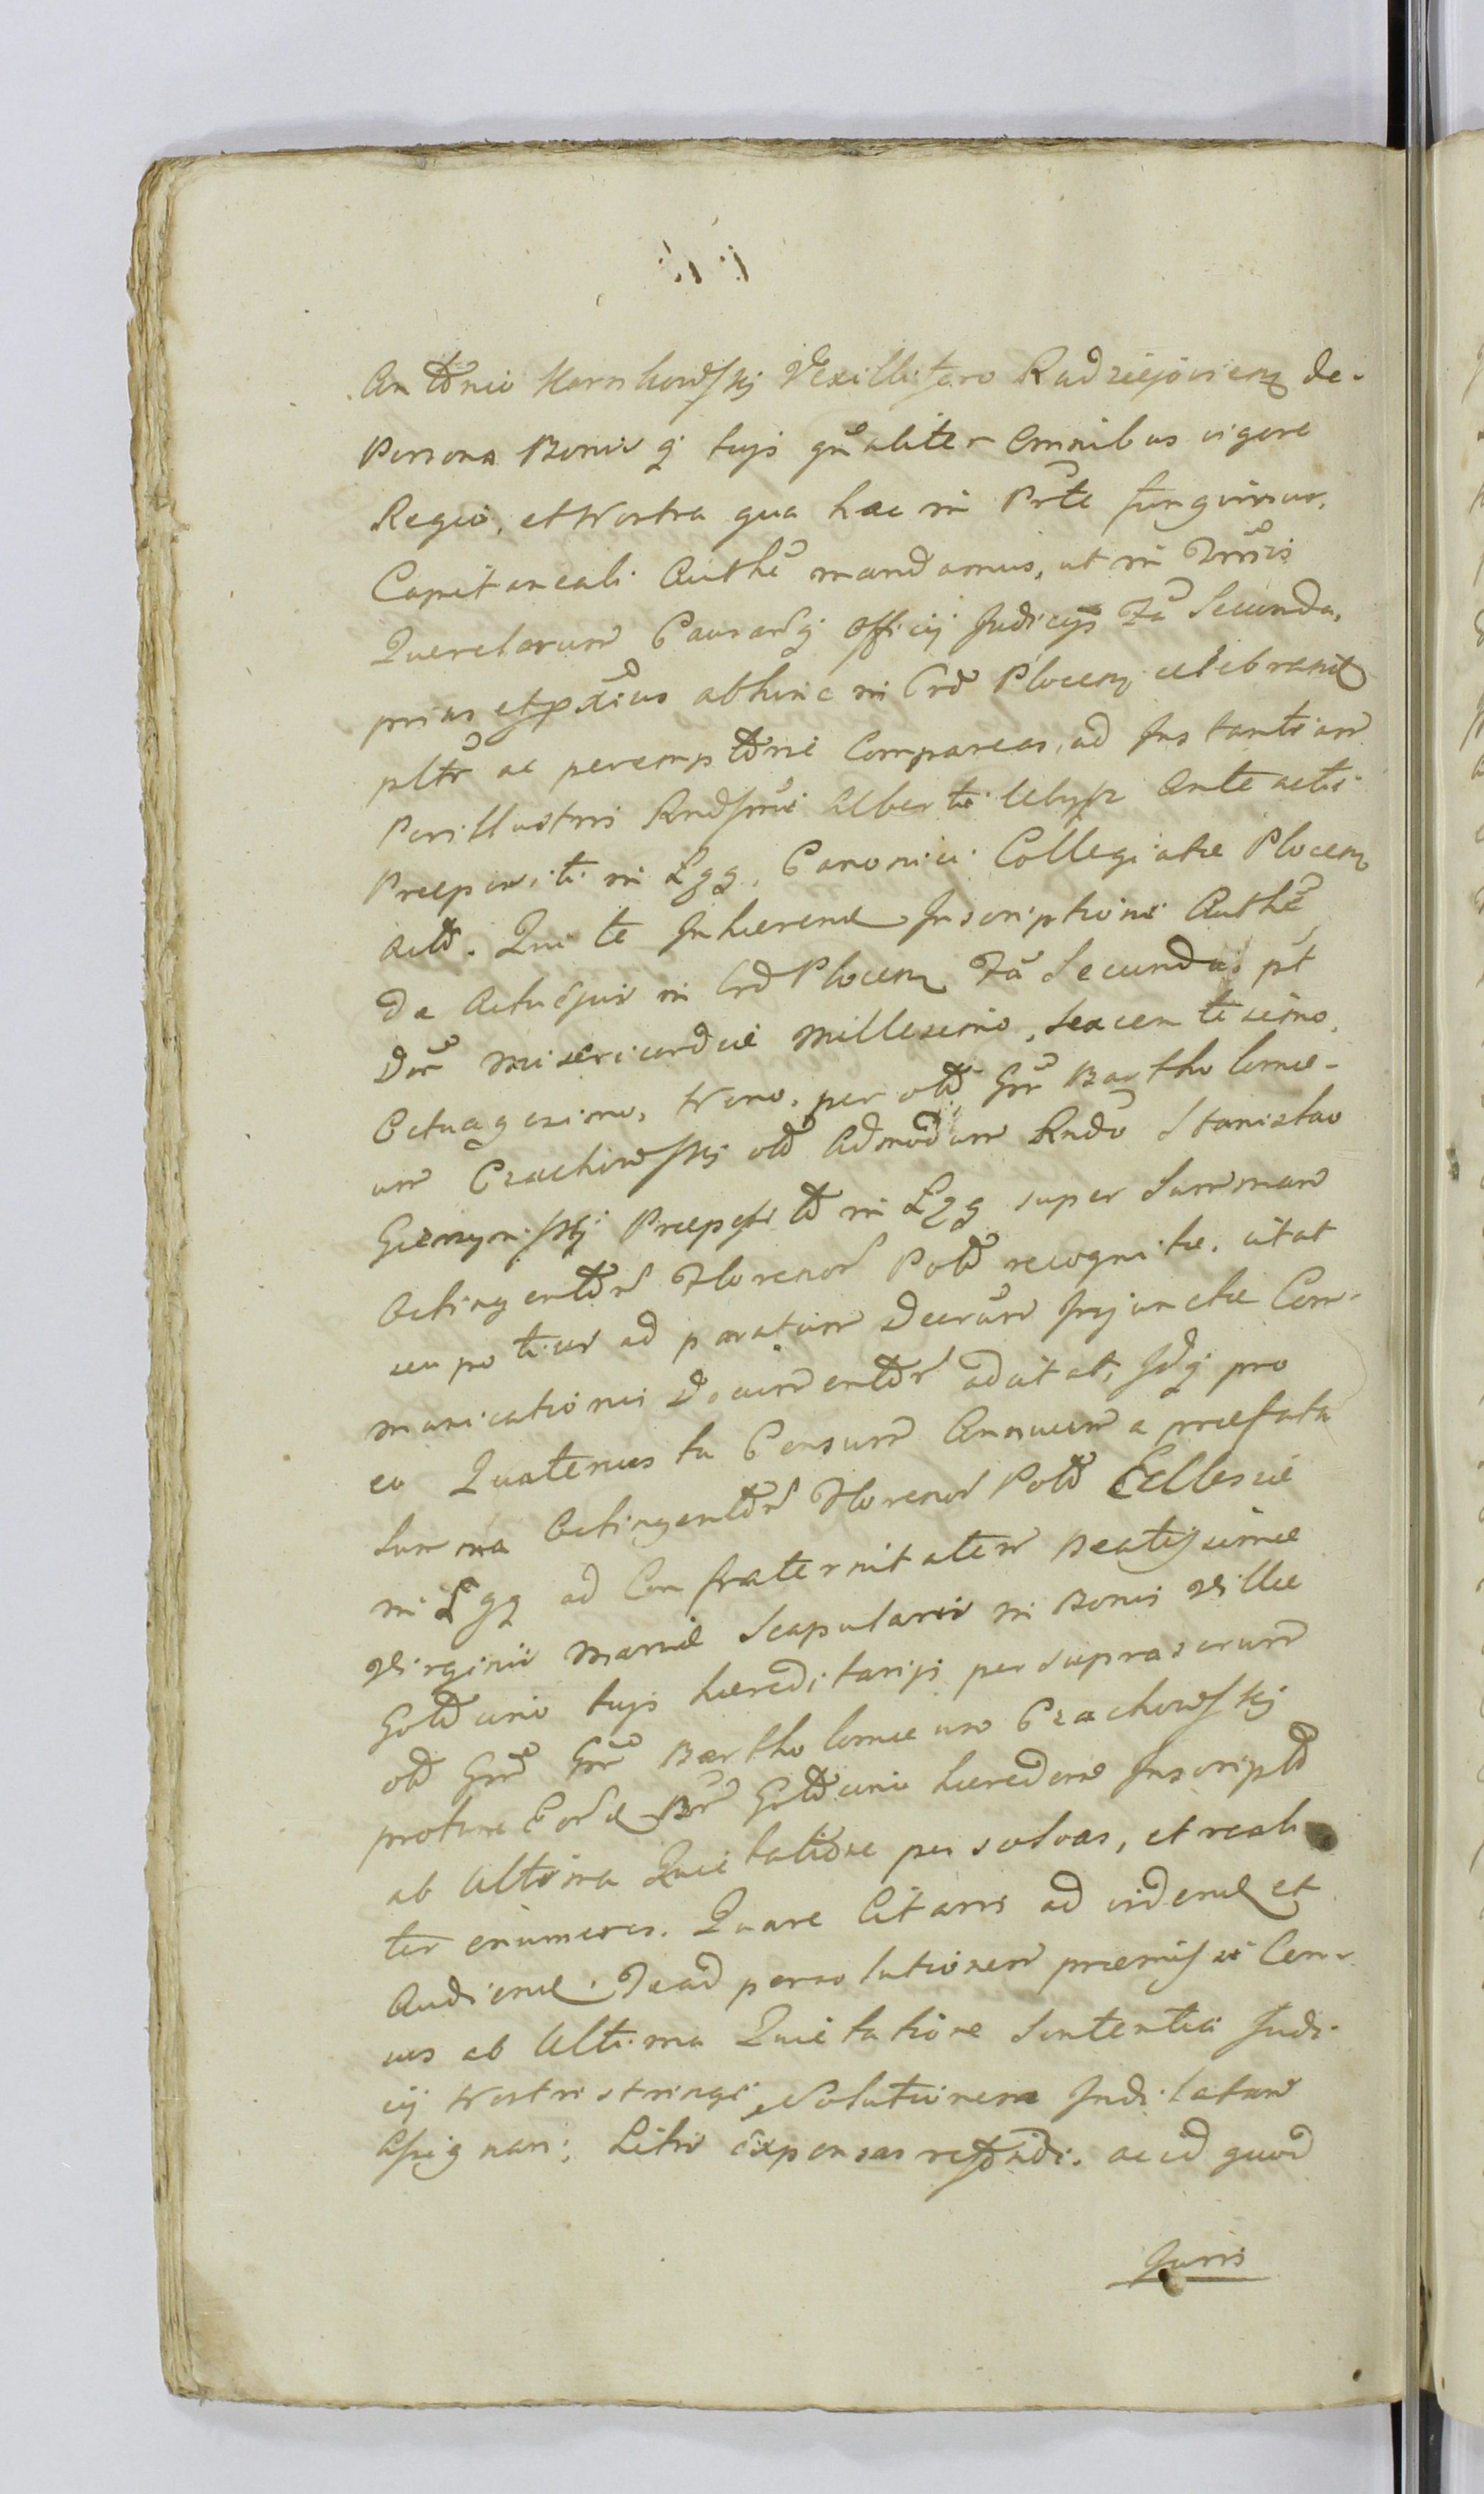 Antonio Karnkowskj Vexillifero Radziejovien de
Persona Bonisq tuis gnaliter omnibus vigore
Regio, et Nostra qua hac in Prte fungimur,
Capitaneali Authe mandamus, ut in Trmis
Querelarum Causarq Officij Judicijs Fa Secunda,
prius et pximus abhinc in Crd Plocen celebrand
pltr ac peremptorie Compareas, ad Instantiam
Perillustris Rndssmi Alberti Anteacti
Præpositi in Lgg, Canonici Collegiatæ Plocen
actor. Qui te Inhærend Inscriptioni Authe
de Actu in Crd Plocen Fa Secunda pt
Dor Misericordiæ Millesimo, sexcentesimo,
Octuagesimo, Nono, per olim Gnr Bartholomæ-
um Czachowskj olim Admodum Rndo Stanislao
Præposito in Lgg super Summam
Octingentor Florenor Polo recognitæ, citat
seu potius ad paratum Decrum Injunctæ Com-
municationis Documentor adcitat, Idq pro
eo Quatenus tu Censum Annuum a præfata
Summa Octingentor Florenor Polo Ecclesiæ
in Lgg ad Confraternitatem Beatissimæ
Virginis Mariæ Scapularis in Bonis Villæ
Goldcino tuis hæreditarijs per suprascrum
olim Gnr Gnr Bartholomæum Czachowskj
protunc Eord Bor Goldcino hæredem Inscripto
ab Ultima Quietatione persolvas, et reali
ter enumeres. Quare Citaris ad videnđ et
Audienđ. Te ad persolutionem præmissi Cen-
sus ab Ultima Quietatione Sententia Judi-
cij Nostri stringi, Solutionem Indilatam
Assignari, Litis expensas refundi. ac id quod
Juris